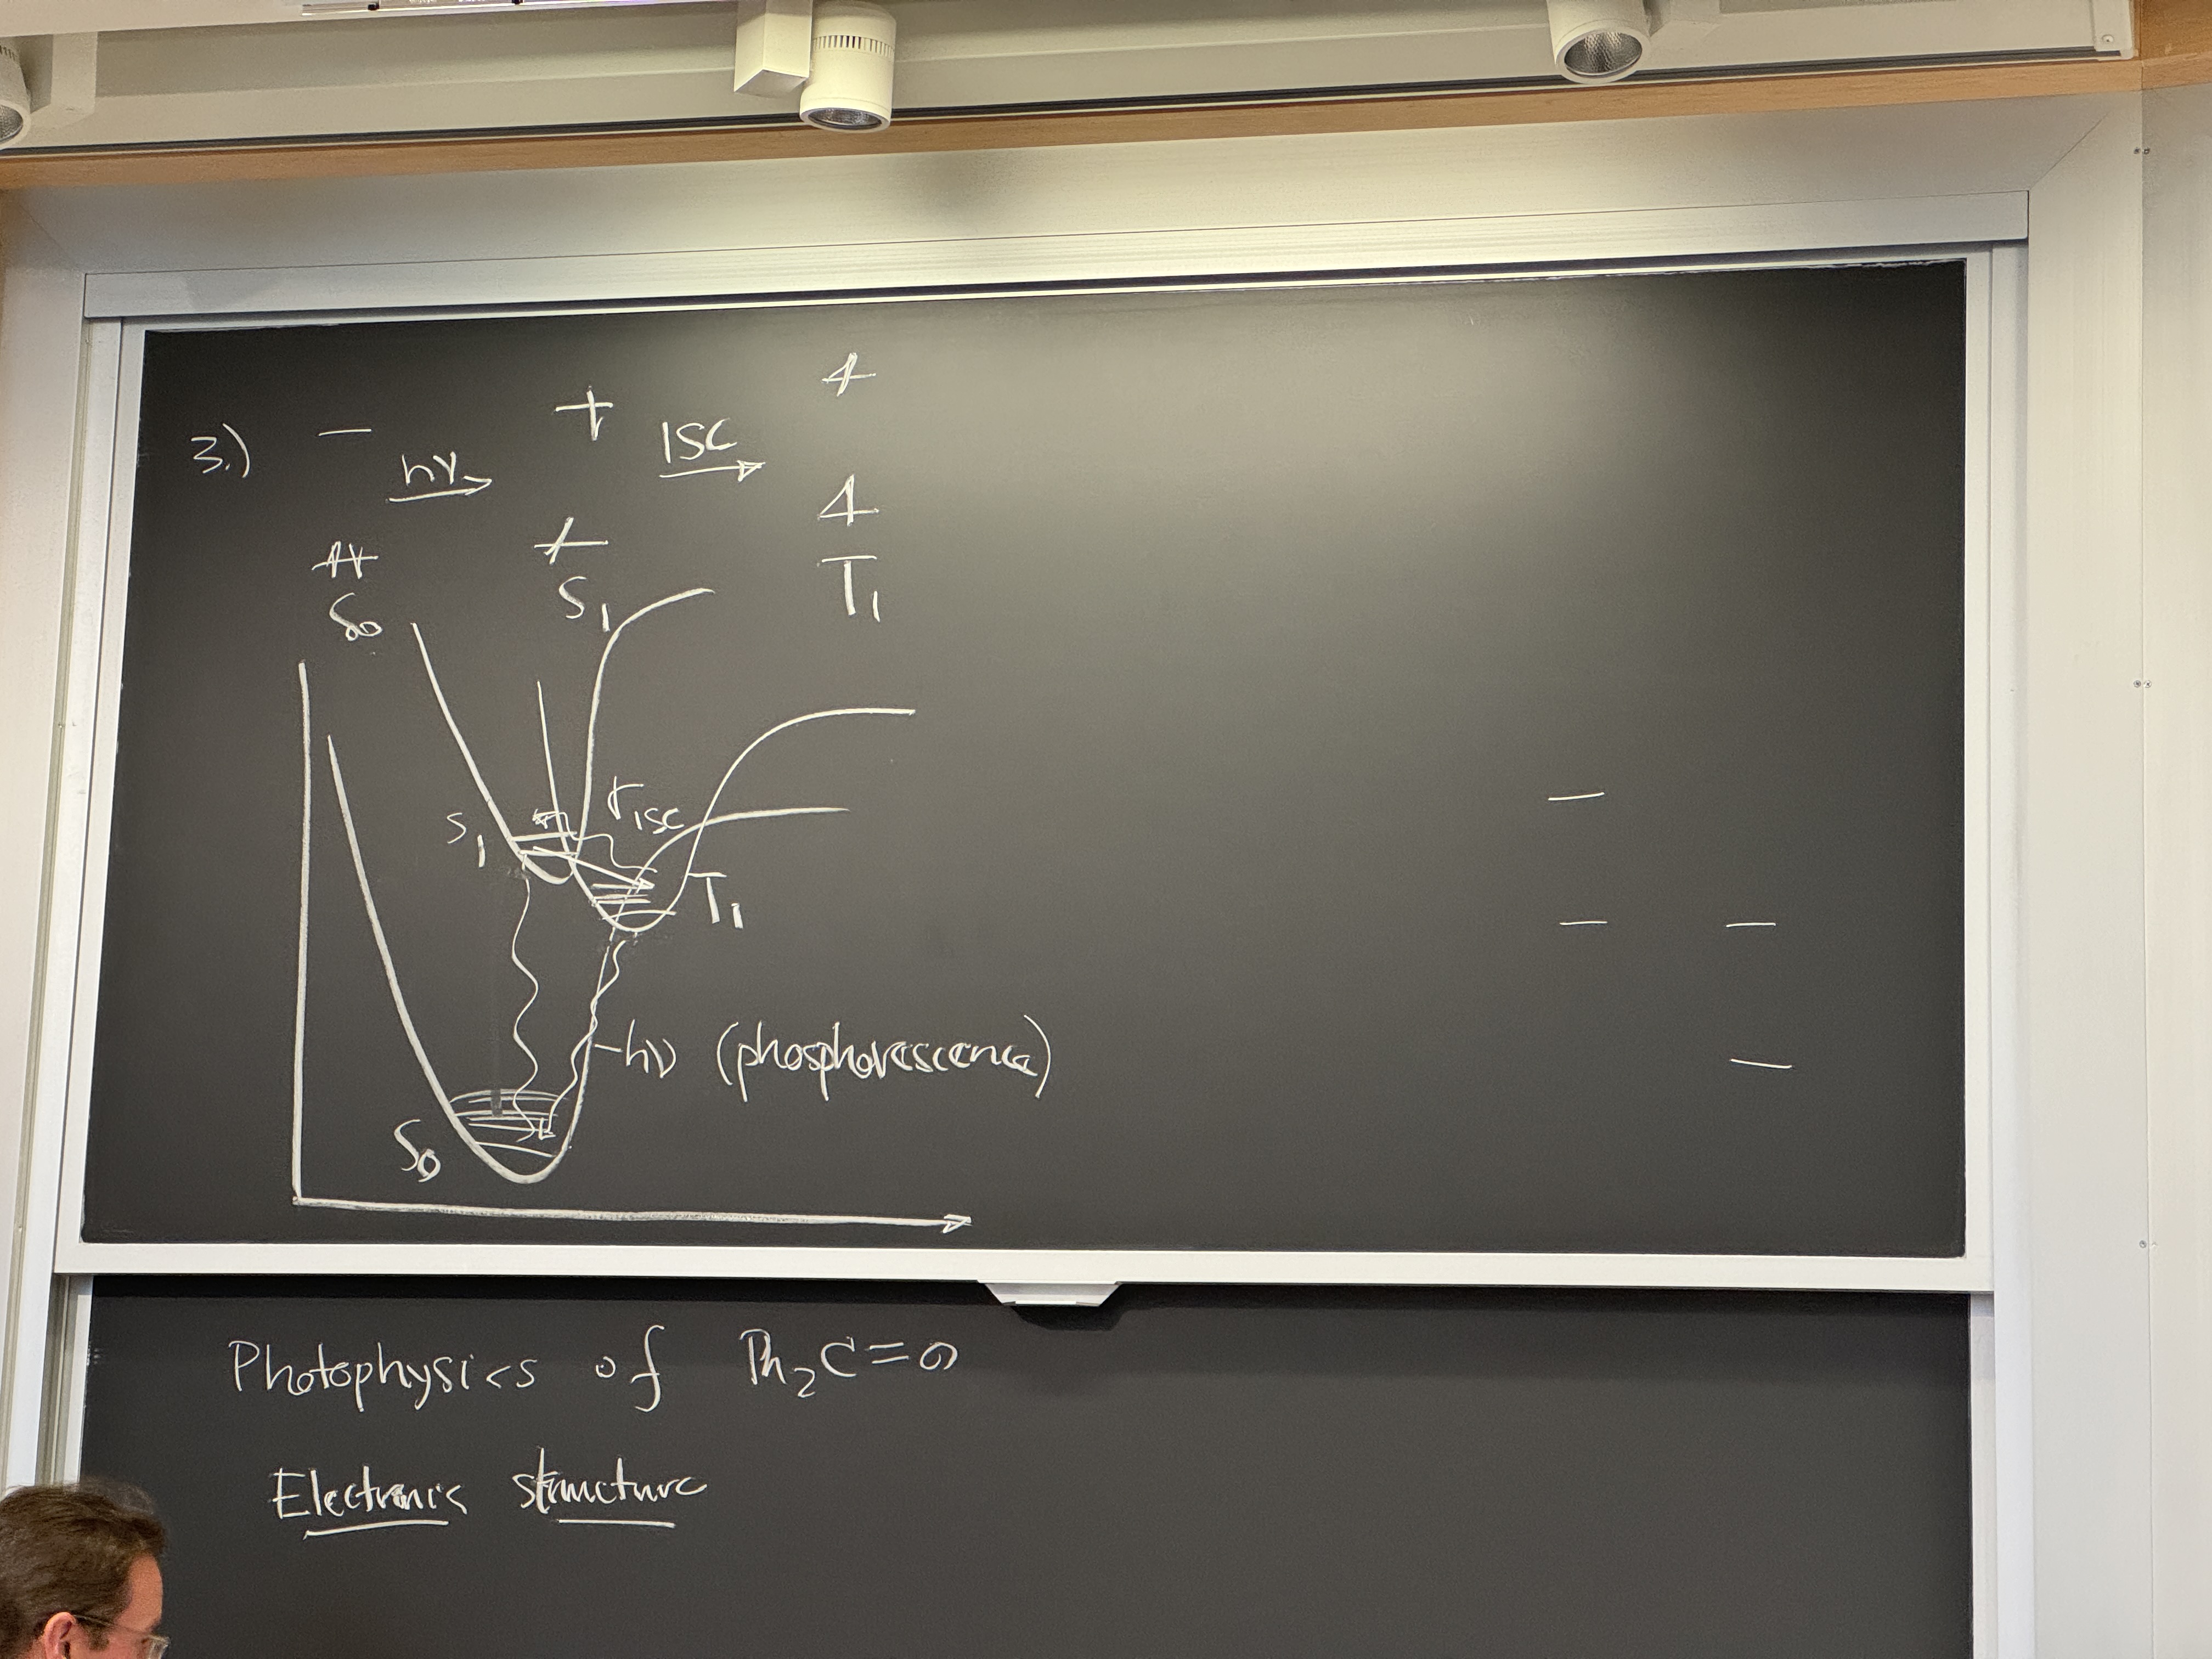 3.) hν ISC
S₀ S₁ T₁
S₁ rISC
T₁
hν (phosphorescence)
S₀
Photophysics of Ph₂C=O
Electronic structure